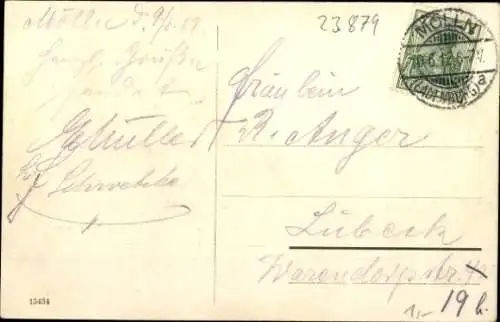 23879
Mölln d. 9/6. 12.
Herzl. Grüße
sendet
E. Müller
Schwetzke
MÖLLN
10.6.12.
(LAUENBURG)
a
Fräulein
R. Anger
Lübeck
Warendorpstr.
19 b.
1,-
15454